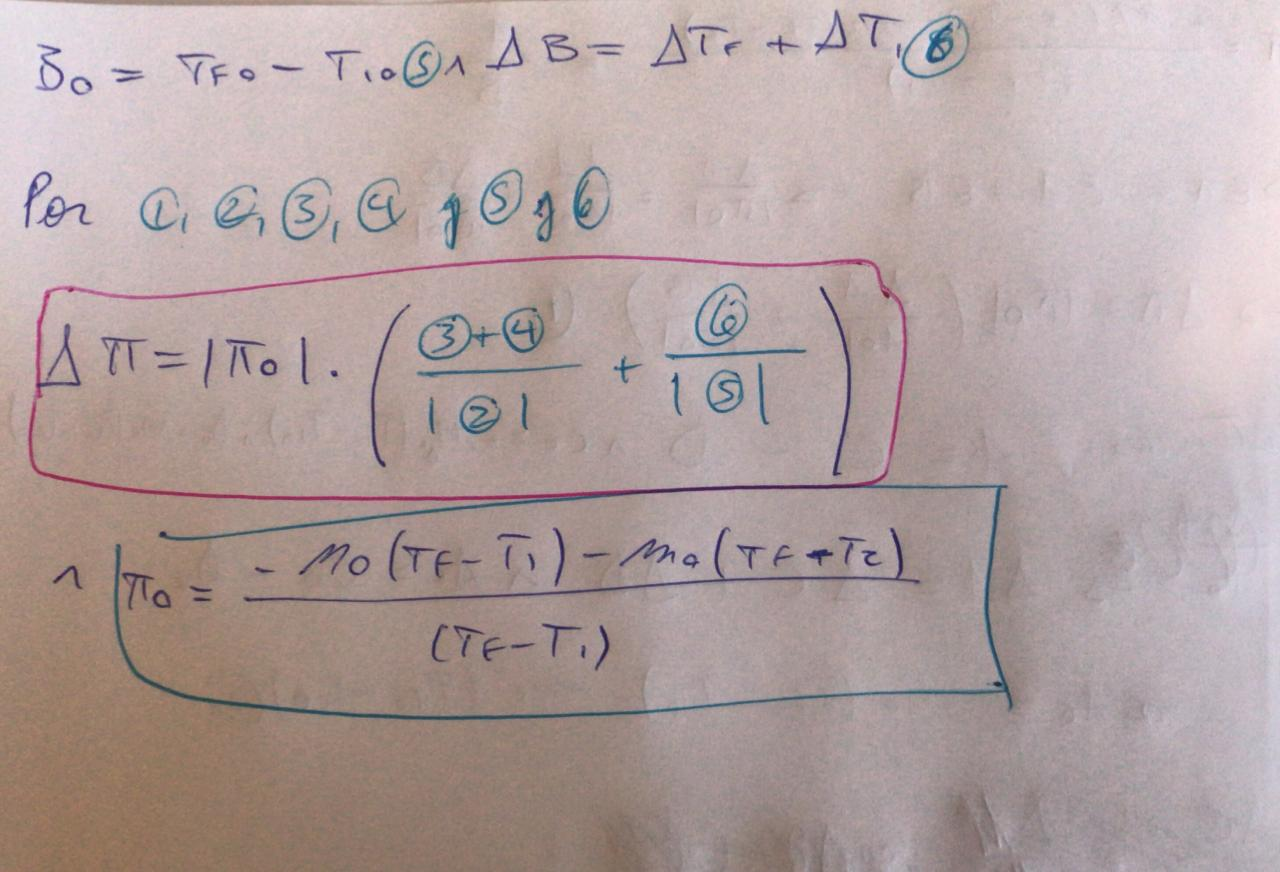 B₀ = TF₀ - T₁₀ ⑤ ∧ ΔB = ΔTF + ΔT₁ ⑥
Por ①, ②, ③, ④ y ⑤ y ⑥
Δπ = |π₀| · ( (③+④)/|②| + ⑥/|⑤| )
∧ π₀ = (-M₀(TF-T₁) - ma(TF-T₂))/(TF-T₁)